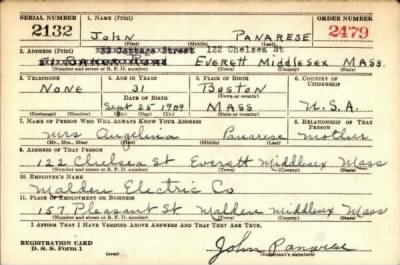 SERIAL NUMBER 1. NAME (Print) ORDER NUMBER
2132 John Panarese 2479
(First) (Middle) (Last)
2. ADDRESS (Print) 39 Cottage Street 122 Chelsea St
Everett Middlesex Mass.
(Number and street or R. F. D. number) (Town) (County) (State)
3. TELEPHONE 4. AGE IN YEARS 5. PLACE OF BIRTH 6. COUNTRY OF CITIZENSHIP
None 31 Boston
(Town or county)
DATE OF BIRTH
Sept 25 1909 Mass U.S.A.
(Exchange) (Number) (Mo.) (Day) (Yr.) (State or country)
7. NAME OF PERSON WHO WILL ALWAYS KNOW YOUR ADDRESS 8. RELATIONSHIP OF THAT PERSON
Mrs Angelina Panarese Mother
(Mr., Mrs., Miss) (First) (Middle) (Last)
9. ADDRESS OF THAT PERSON
122 Chelsea St Everett Middlesex Mass
(Number and street or R. F. D. number) (Town) (County) (State)
10. EMPLOYER'S NAME
Malden Electric Co
11. PLACE OF EMPLOYMENT OR BUSINESS
157 Pleasant St Malden Middlesex Mass
(Number and street or R. F. D. number) (Town) (County) (State)
I AFFIRM THAT I HAVE VERIFIED ABOVE ANSWERS AND THAT THEY ARE TRUE.
REGISTRATION CARD
D. S. S. Form 1 (over) John Panarese
(Registrant's signature)